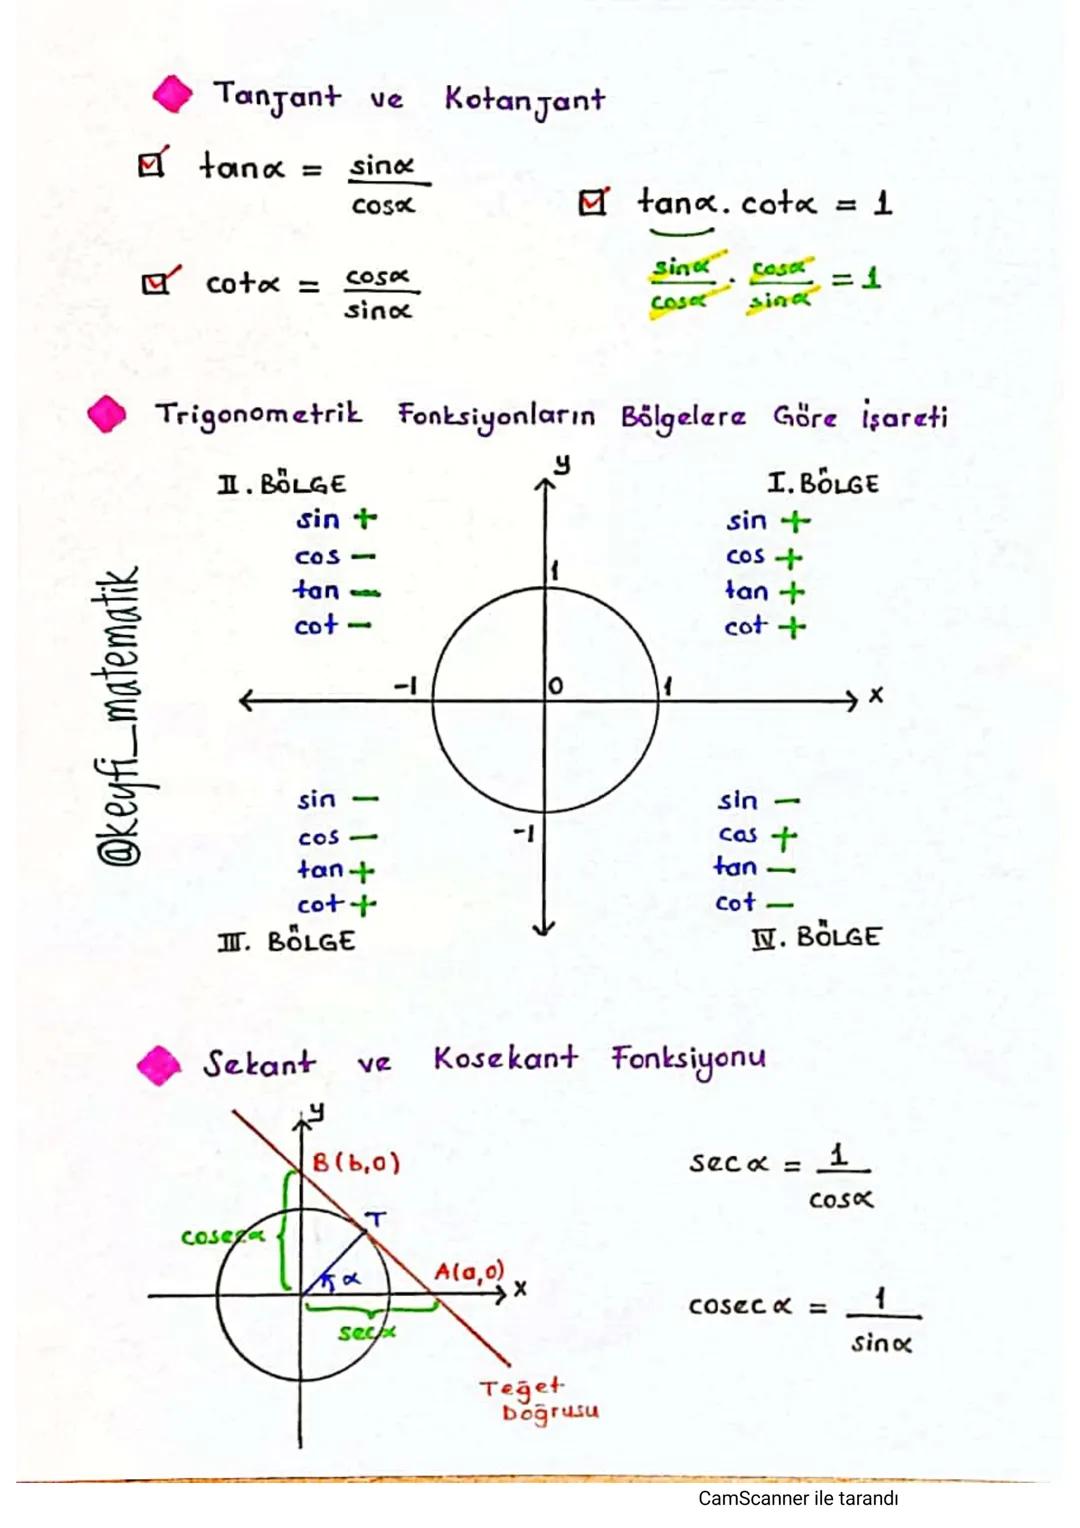 Tanjant ve Kotanjant
tanα = sinα / cosα
tanα . cotα = 1
sinα / cosα . cosα / sinα = 1
cotα = cosα / sinα
Trigonometrik Fonksiyonların Bölgelere Göre işareti
y
II. BÖLGE
sin +
cos −
tan −
cot −
I. BÖLGE
sin +
cos +
tan +
cot +
1
-1
0
1
x
-1
@keyfi_matematik
sin −
cos −
tan +
cot +
III. BÖLGE
sin −
cos +
tan −
cot −
IV. BÖLGE
Sekant ve Kosekant Fonksiyonu
y
B(b,0)
T
cosecα
α
A(a,0)
x
secα
Teğet
Doğrusu
secα = 1 / cosα
cosecα = 1 / sinα
CamScanner ile tarandı